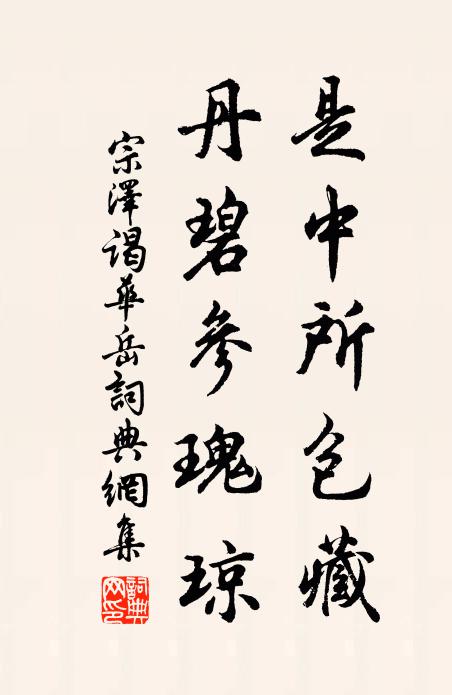 是中所包藏
丹碧參瑰琼
宗澤謁華岳詞典網集
詞典網印